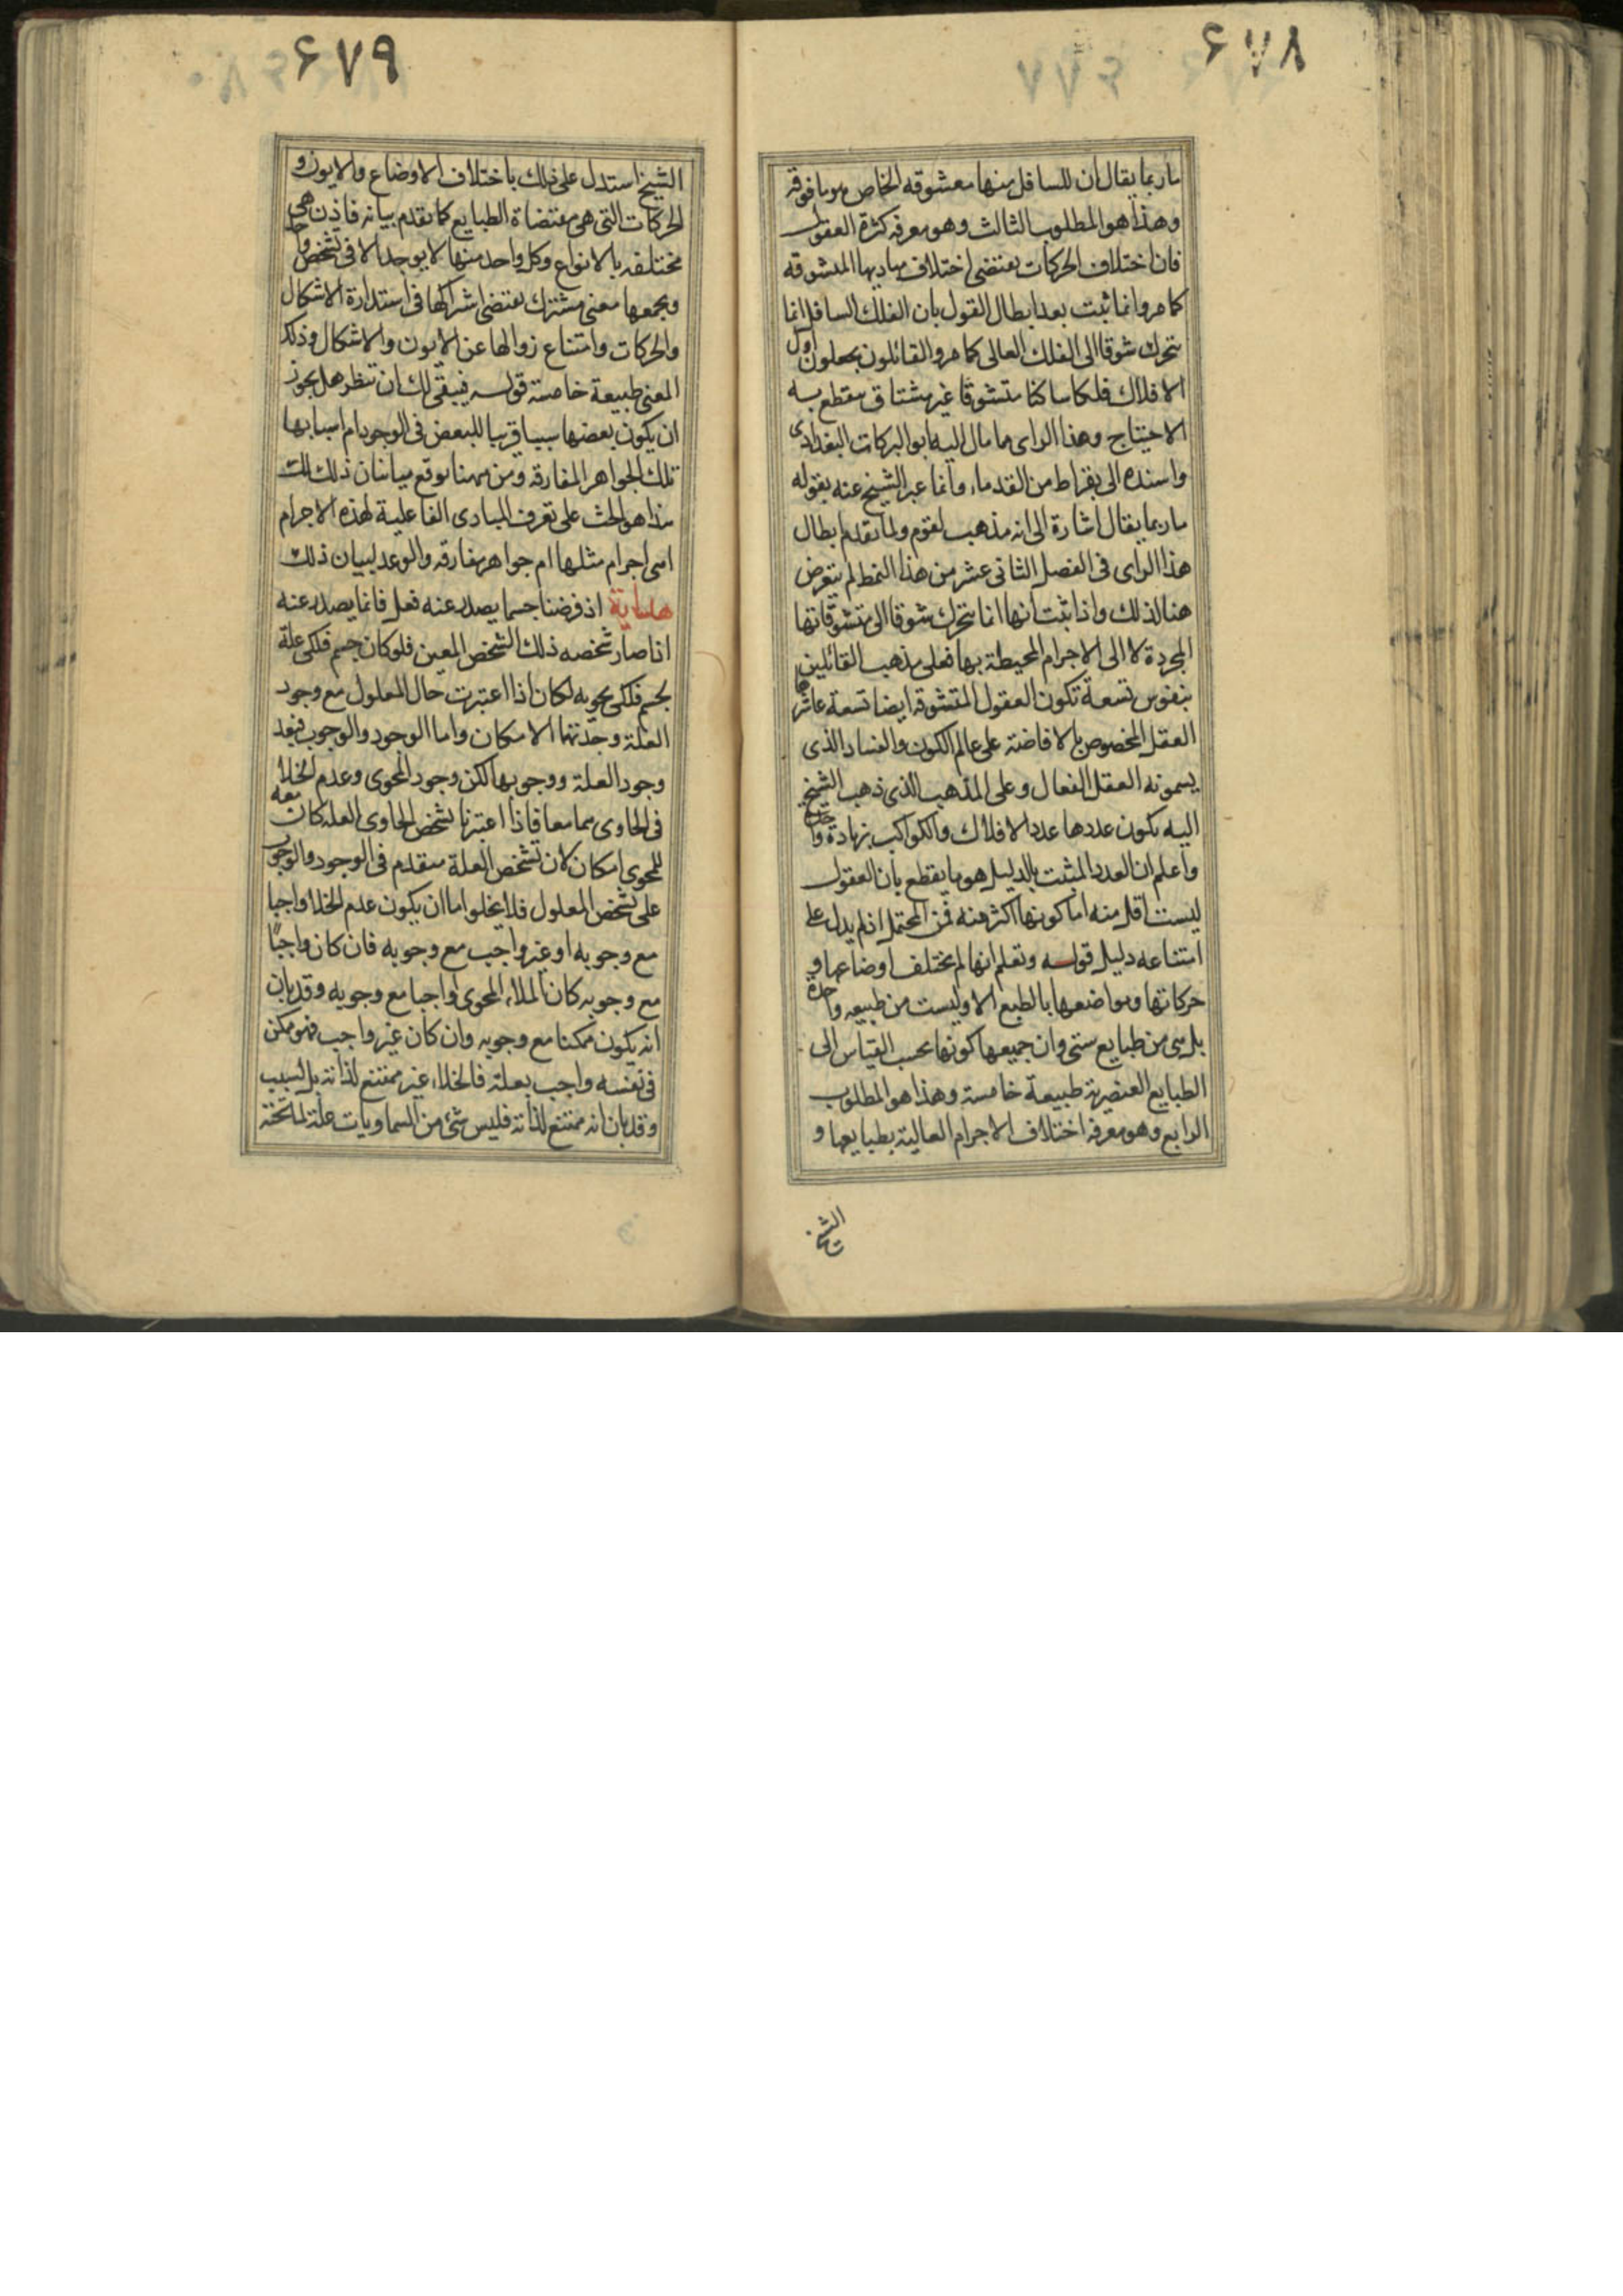 ۶۷۸
ما ربما يقال ان للسافل منها معشوقه الخاص هو ما فوقه
وهذا هو المطلوب الثالث وهو معرفة كثرة العقول
فان اختلاف الحركات يقتضى اختلاف مباديها المتشوقه
كما مر وانما ثبت بعد ابطال القول بان الفلك السافل انما
يتحرك شوقا الى الفلك العالى كما مر والقائلون يجعلون اول
الافلاك فلكا ساكنا متشوقا غير مشتاق ينقطع به
الاحتياج وهذا الراى مما مال اليه ابو البركات البغدادى
واسنده الى بقراط من القدماء وانما عبر الشيخ عنه بقوله
ما ربما يقال اشارة الى انه مذهب لقوم ولما تقدم ابطال
هذا الراى فى الفصل الثانى عشر من هذا النمط لم يتعرض
هنا لذلك واذا ثبت انها انما يتحرك شوقا الى متشوقاتها
المجردة لا الى الاجرام المحيطة بها فعلى مذهب القائلين
بنفوس تسعة تكون العقول المتشوقه ايضا تسعة عاشرها
العقل المخصوص بالافاضة على عالم الكون والفساد الذى
يسمونه العقل الفعال وعلى المذهب الذى ذهب الشيخ
اليه يكون عددها عدد الافلاك والكواكب بزيادة واحد
واعلم ان العدد المثبت بالدليل هو ما يقطع بان العقول
ليست اقل منه اما كونها اكثر منه فمن المحتمل اذ لم يدل على
امتناعه دليل قوله وتعلم انها لم يختلف اوضاعها و
حركاتها ومواضعها بالطبع الا وليست من طبيعه واحدة
بل هى من طبايع شتى وان جميعها كونها بحسب القياس الى
الطبايع العنصرية طبيعة خامسة وهذا هو المطلوب
الرابع وهو معرفة اختلاف الاجرام العالية بطبايعها و
الشيخ
۶۷۹
الشيخ استدل على ذلك باختلاف الاوضاع والايون و
الحركات التى هى مقتضاة الطبايع كما تقدم بيانه فاذن هى
مختلفه بالانواع وكل واحد منها لا يوجد الا فى شخص واحد
ويجمعها معنى مشترك يقتضى اشراكها فى استدارة الاشكال
والحركات وامتناع زوالها عن الايون والاشكال وذلك
المعنى طبيعة خامسة قوله فيبقى لك ان تنظر هل يجوز
ان يكون بعضها سببا قريبا للبعض فى الوجود ام اسبابها
تلك الجواهر المفارقه ومن ههنا توقع منا بيان ذلك لك
هذا هو الحث على تعرف المبادى الفاعلية لهذه الاجرام
اهى اجرام مثلها ام جواهر مفارقه والوعد لبيان ذلك
هداية اذ فرضنا جسما يصدر عنه فعل فانما يصدر عنه
اذا صار شخصه ذلك الشخص المعين فلو كان جسم فلكى علة
لجسم فلكى يحويه لكان اذا اعتبرت حال المعلول مع وجود
العلة وجدتها الامكان واما الوجود والوجوب فبعد
وجود العلة ووجوبها لكن وجود المحوى وعدم الخلا
فى الحاوى هما معا فاذا اعتبرنا تشخص الحاوى العله كان معه
للمحوى امكان لان تشخص العلة متقدم فى الوجود والوجوب
على تشخص المعلول فلا يخلوا اما ان يكون عدم الخلا واجبا
مع وجوبه او غير واجب مع وجوبه فان كان واجبًا
مع وجوبه كان الملاء المحوى واجبا مع وجوبه وقد بان
انه يكون ممكنا مع وجوبه وان كان غير واجب فهو ممكن
فى نفسه واجب بعلة فالخلاء غير ممتنع لذاته بل لسبب
وقد بان انه ممتنع لذاته فليس شئ من السماويات علة لما تحته